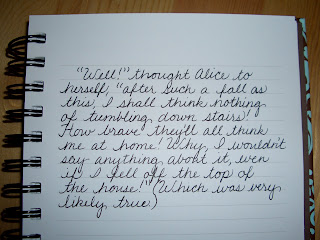 "Well!" thought Alice to
herself, "after such a fall as
this, I shall think nothing
of tumbling down stairs!
How brave they'll all think
me at home! Why, I wouldn't
say anything about it, even
if I fell off the top of
the house!" (Which was very
likely true.)